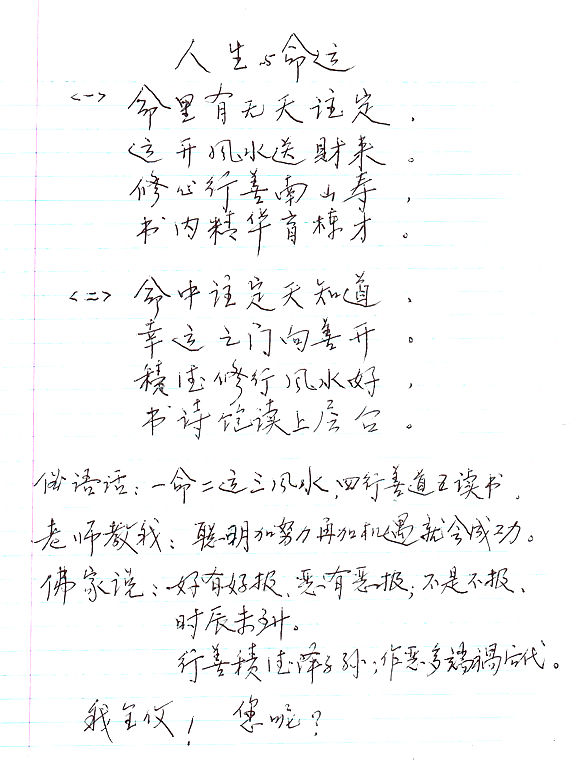 人生与命运
<一> 命里有无天注定，
运开风水送财来。
修心行善南山寿，
书内精华育栋才。
<二> 命中注定天知道，
幸运之门向善开。
積德修行风水好，
书诗饱读上层台。
俗语话：一命二运三风水，四行善道五读书，
老师教我：聪明加努力再加机遇就会成功。
佛家说：好有好报、恶有恶报；不是不报、
时辰未到。
行善積德泽子孙；作恶多端祸后代。
我全仪！您呢？